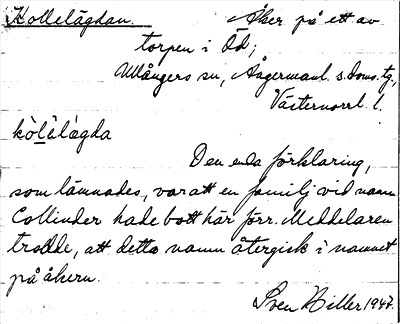 Kollelägdan. Åker på ett av
torpen i Öd;
Ullångers sn, Ångermanl. s. doms. tg,
Västernorrl. l.
kòlèlàgda
Den enda förklaring,
som lämnades, var att en familj vid namn
Collinder hade bott här förr. Meddelaren
trodde, att detta namn återgick i namnet
på åkern.
Sven Hiller 1947.